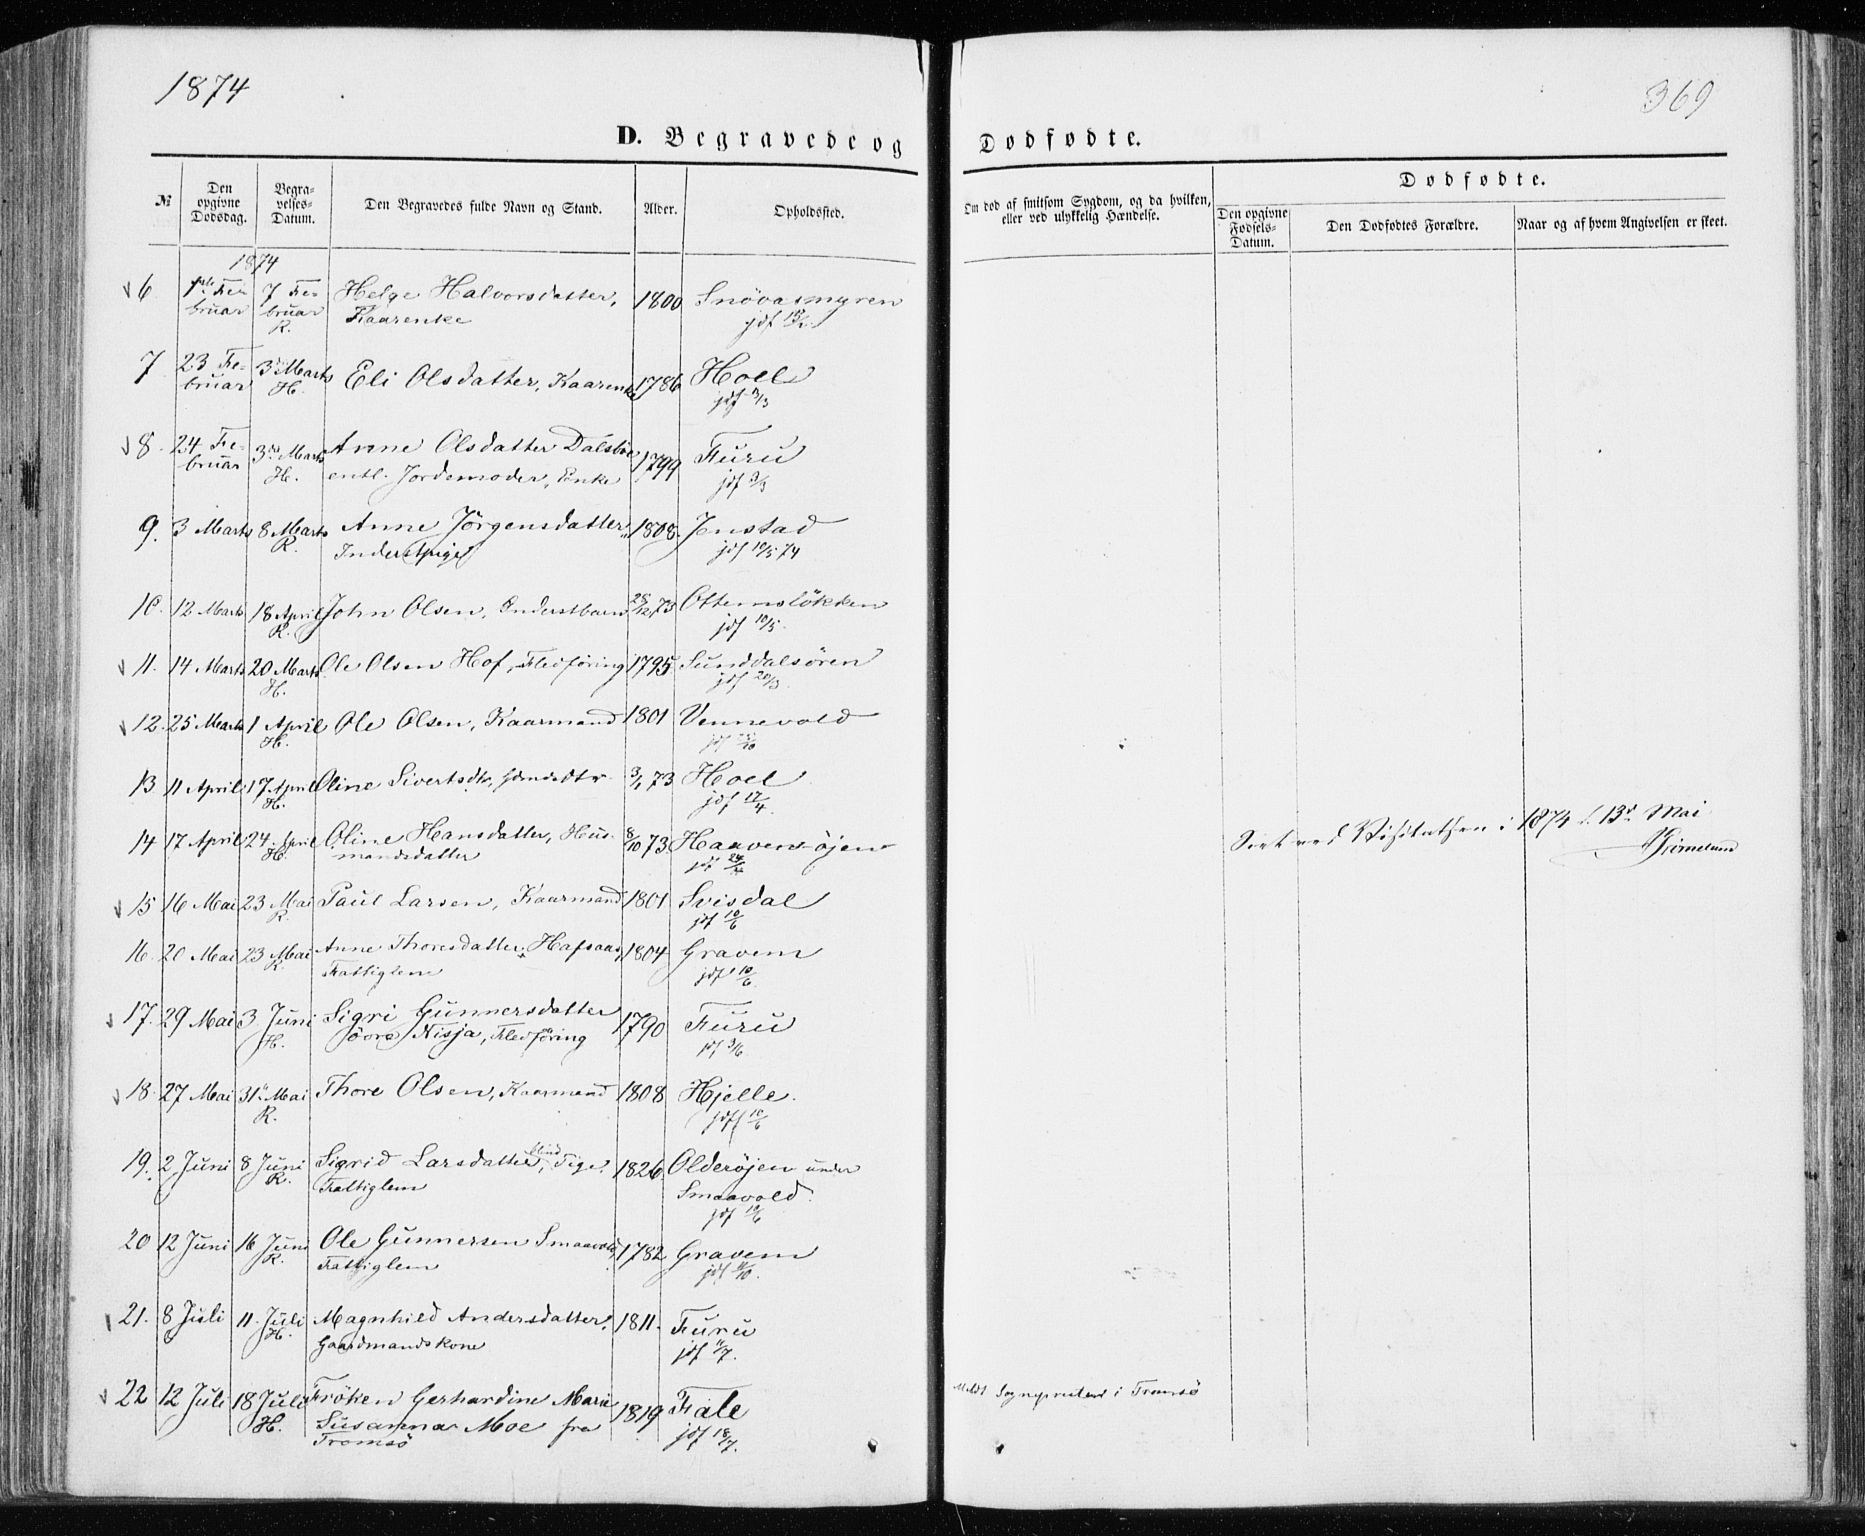 1874
369
D. Begravede og Dødfødte.
№
Den opgivne Dødsdag.
Begravelses-Datum.
Den Begravedes fulde Navn og Stand.
Alder.
Opholdssted.
Om død af smitsom Sygdom, og da hvilken, eller ved ulykkelig Hændelse.
Dødfødte.
Den opgivne Fødsels-Datum.
Den Dødfødtes Forældre.
Naar og af hvem Angivelsen er skeet.
1874
6 1ste Februar 7 Februar R. Helge Halvorsdatter, Kaarenke 1800 Snövasmyren
7 23 Februar 3 Marts H. Eli Olsdatter, Kaarenke 1786 Hoel
jdf 3/3
8. 24 Februar 3 Marts H. Anne Olsdatter Dalsbö
entl. Jordemoder, Enke 1799 Furu
jdf 3/3
9. 3 Marts 8 Marts R. Anne Jörgensdatter, 1808. Jenstad
Inderstpige jdf 10/5 74
10. 12 Marts 18 April R. John Olsen, Inderstbarn 28/12 73 Ottemslökken
jdf 10/5
11. 14 Marts 20 Marts H. Ole Olsen Hof, Fledföring 1795 Sunddalsören
jdf 20/3
12. 25 Marts 1 April H. Ole Olsen, Kaarmand 1801 Vennevold
13 11 April 17 April H. Oline Sivertsdtr, 3/1 73 Hoel
jdf 17/4
14 17 April 24. April H. Oline Hansdatter, Husmandsdatter 8/10 73 Haavensöjen
jdf 24/4
1874 d. 13de Mai
15 16 Mai 23 Mai R. Paul Larsen, Kaarmand 1801 Svisdal
jdf 10/6
16. 20 Mai 23 Mai R. Anne Thoresdatter Hafsaas, 1804 Gravem
Fattiglem jdf 10/6
17. 29 Mai 3 Juni H. Sigri Gunnersdatter
Jöora Nisja, Fledföring 1790 Furu
jdf 3/6
18. 27 Mai 31 Mai R. Thore Olsen, Kaarmand 1808 Hjelle.
jdf 10/6
19. 2 Juni 8 Juni R. Sigrid Larsdatter, blind Pige, 1826 Olderöjen under
Fattiglem Smaavold.
jdf 10/6
20 12 Juni 16 Juni R. Ole Gunnersen Smaavold, 1782 Gravem
Fattiglem
21. 8 Juli 11. Juli H. Magnhild Andersdatter, 1811. Furu
Gaardmandskone jdf 11/7.
22 12 Juli 18 Juli H. Fröken Gerhardine Marie
Susanna Moe fra
Tromsö 1819 Fale
jdf 18/7.
Meldt Sognepræsten i Tromsö